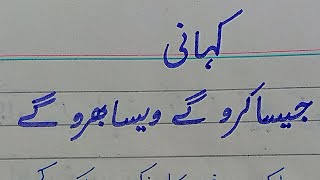 کہانی
جیسا کرو گے ویسا بھرو گے